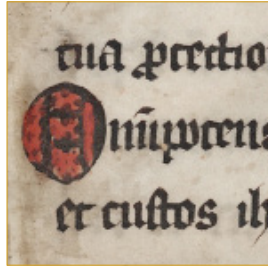 tua ꝓtectio
Om̄ipotens
et cuſtos ih